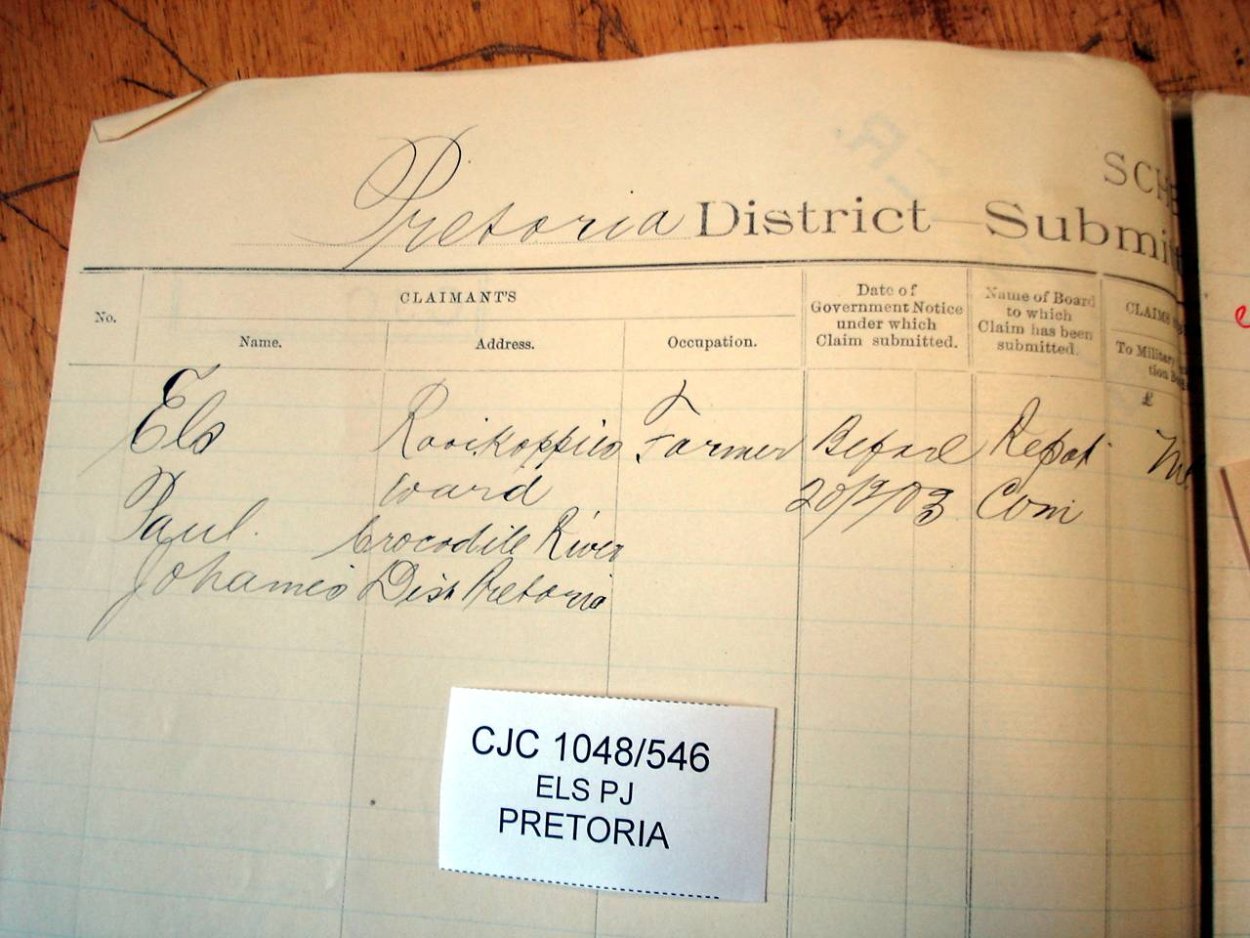 SCHE
Pretoria District Submi
No.
CLAIMANT'S
Name.
Address.
Occupation.
Date of
Government Notice
under which
Claim submitted.
Name of Board
to which
Claim has been
submitted.
CLAIMS
To Military
tion
£
Els
Paul.
Johannes
Rooikoppies
Ward
Crocodile River
Dist Pretoria
Farmer
Before
20/9/03
Repat
Com
CJC 1048/546
ELS PJ
PRETORIA